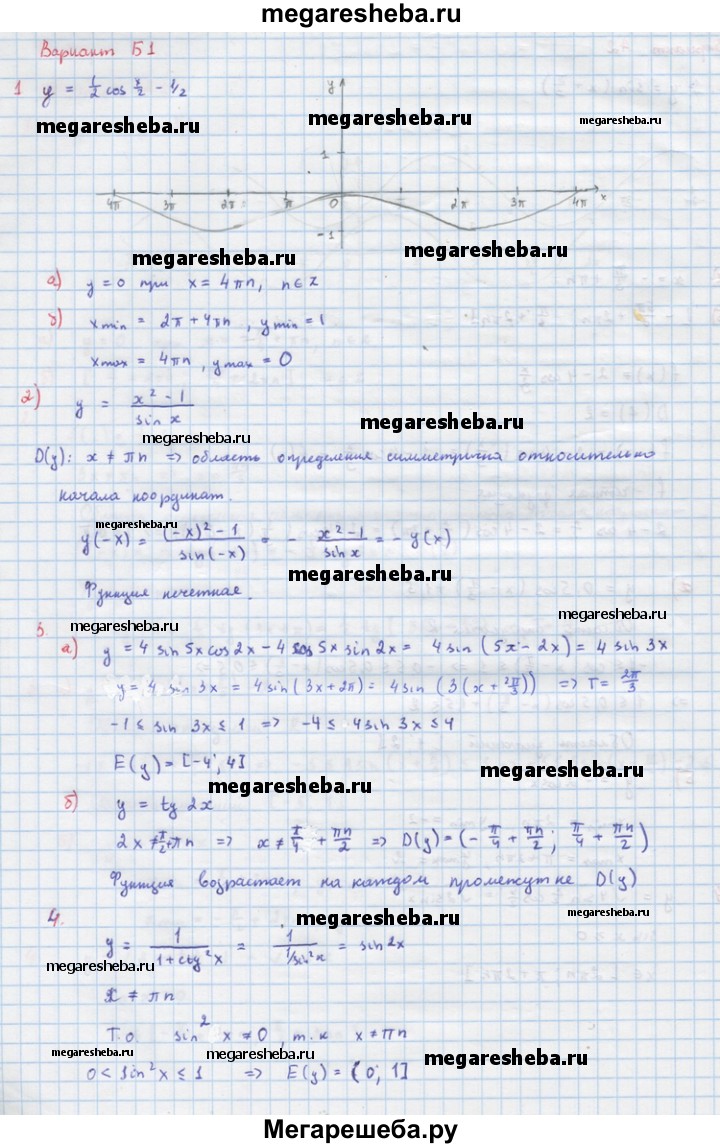 megaresheba.ru
Вариант Б1
1 y = 1/2 cos x/2 - 1/2
megaresheba.ru megaresheba.ru megaresheba.ru
y
1
4π 3π 2π π 0 2π 3π 4π x
-1
megaresheba.ru megaresheba.ru
а) y = 0 при x = 4πn, n ∈ Z
б) xmin = 2π + 4πn, ymin = 1
xmax = 4πn, ymax = 0
2) y = (x² - 1)/(sin x)
megaresheba.ru
megaresheba.ru
D(y): x ≠ πn => область определения симметрична относительно
начала координат.
megaresheba.ru
y(-x) = ((-x)² - 1)/(sin(-x)) = - (x² - 1)/(sin x) = - y(x)
megaresheba.ru
Функция нечетная.
megaresheba.ru
3. megaresheba.ru
а) y = 4 sin 5x cos 2x - 4 cos 5x sin 2x = 4 sin (5x - 2x) = 4 sin 3x
y = 4 sin 3x = 4 sin (3x + 2π) = 4 sin (3(x + 2π/3)) => T = 2π/3
-1 ≤ sin 3x ≤ 1 => -4 ≤ 4 sin 3x ≤ 4
E(y) = [-4; 4]
megaresheba.ru
megaresheba.ru
б) y = tg 2x
2x ≠ π/2 + πn => x ≠ π/4 + πn/2 => D(y) = (- π/4 + πn/2; π/4 + πn/2)
Функция возрастает на каждом промежутке D(y)
4. megaresheba.ru
y = 1/(1 + ctg²x) = 1/(1/sin²x) = sin 2x
megaresheba.ru megaresheba.ru
x ≠ πn
Т.о. sin² x ≠ 0, т.к x ≠ πn
megaresheba.ru megaresheba.ru megaresheba.ru
0 < sin²x ≤ 1 => E(y) = (0; 1]
Мегарешеба.ру